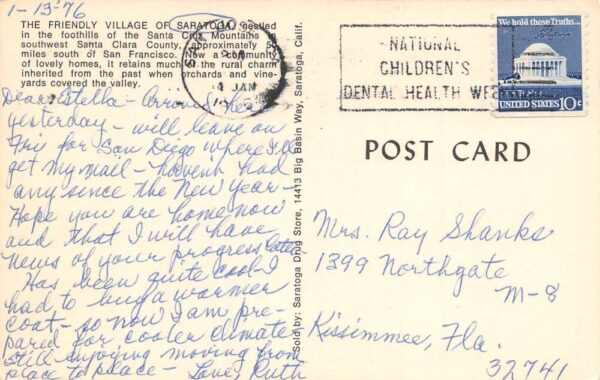 1-13-76
THE FRIENDLY VILLAGE OF SARATOGA, nestled
in the foothills of the Santa Cruz Mountains
southwest Santa Clara County, approximately 5
miles south of San Francisco. Now a community
of lovely homes, it retains much of the rural charm
inherited from the past when orchards and vine-
yards covered the valley.
Dear Estella - Arrived here
yesterday - will leave on
Fri for San Diego where I'll
get my mail - haven't had
any since the New Year -
Hope you are home now
and that I will have
news of your progress later
Has been quite cool - I
had to buy a warmer
coat - so now I am pre-
pared for cooler climate
Still enjoying moving from
place to place - Love, Ruth
Sold by: Saratoga Drug Store, 14413 Big Basin Way, Saratoga, Calif.
PM
14 JAN
NATIONAL
CHILDREN'S
DENTAL HEALTH WEEK
We hold these Truths...
UNITED STATES 10c
POST CARD
Mrs. Ray Shanks
1399 Northgate
M-8
Kissimmee, Fla.
32741